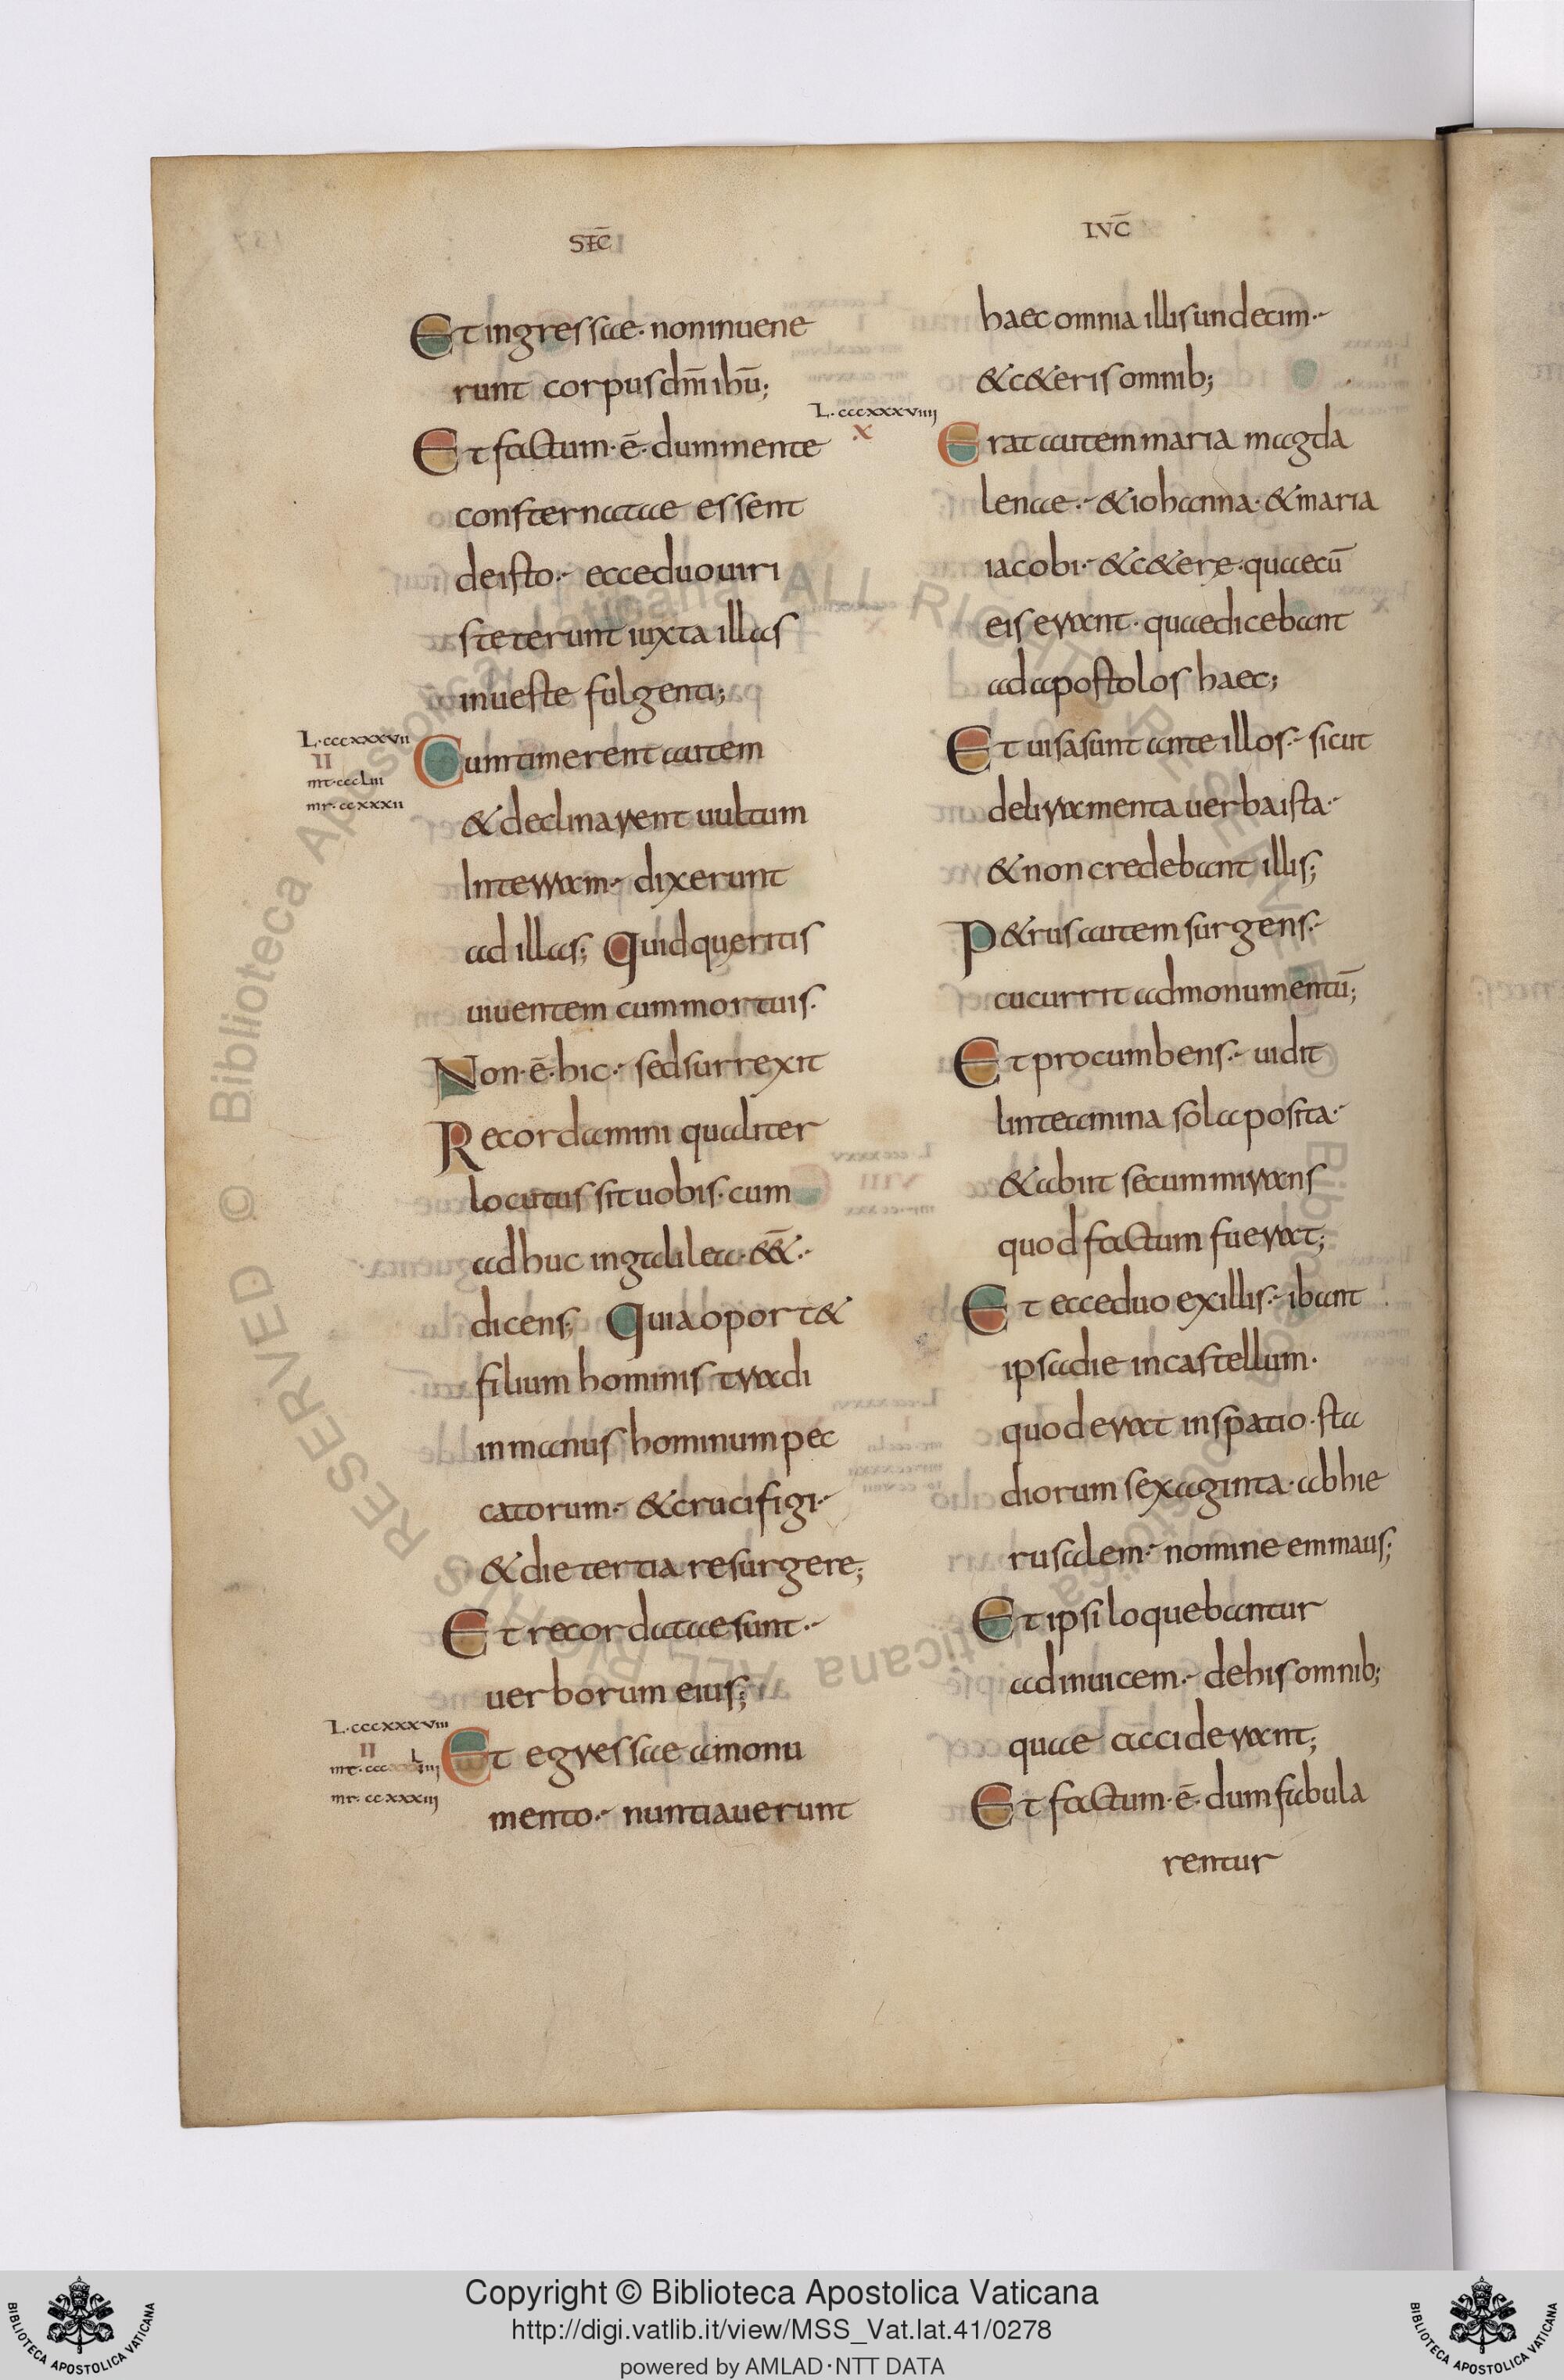 SEC̅
Et ingressae· non inuene
runt corpus dn̅i ihū;
Et factum· ē· dum mente
consternatae essent
de isto·- ecce duo uiri
steterunt iuxta illas
in ueste fulgenti;
L·cccxxxvii
II
mt·cccLiii
mr·ccxxxii
Cum timerent autem
& declinarent uultum
In terram·- dixerunt
ad illas; Quid queritis
uiuentem cum mortuis·
Non· ē· hic·- sed surrexit
Recordamini qualiter
locutus sit uobis· cum
adhuc in galilea·
dicens; Quia oport&
filium hominis tradi
in manus hominum pec
catorum·- & crucifigi·-
& die tertia resurgere;
Et recordatae sunt·-
uerborum eius;
L·cccxxxviii
II
mr·ccxxxiii
Et egressae a monu
mento·- nuntiauerunt
LVC̅
haec omnia illis undecim·-
& c&eris omnib;
L·cccxxxviiii
X
Erat autem maria magda
lenae·- & iohanna· & maria
iacobi·- & c&erę· quae cū
eis erant· quae dicebant
ad apostolos haec;
Et uisa sunt ante illos·- sicut
deliramenta uerba ista·-
& non credebant illis;
P&rus autem surgens·-
cucurrit ad monumentū;
Et procumbens·- uidit
linteamina sola posita·-
& abiit secum mirans
quod factum fuerat;
Et ecce duo ex illis·- ibant
ipsa die in castellum·
quod erat in spatio· sta
diorum sexaginta· ab hie
rusalem·- nomine emmaus;
Et ipsi loquebantur
ad inuicem·- de his omnib;
quae acciderant;
Et factum· ē· dum fabula
rentur
Copyright © Biblioteca Apostolica Vaticana
http://digi.vatlib.it/view/MSS_Vat.lat.41/0278
powered by AMLAD·NTT DATA
BIBLIOTECA APOSTOLICA VATICANA
BIBLIOTECA APOSTOLICA VATICANA